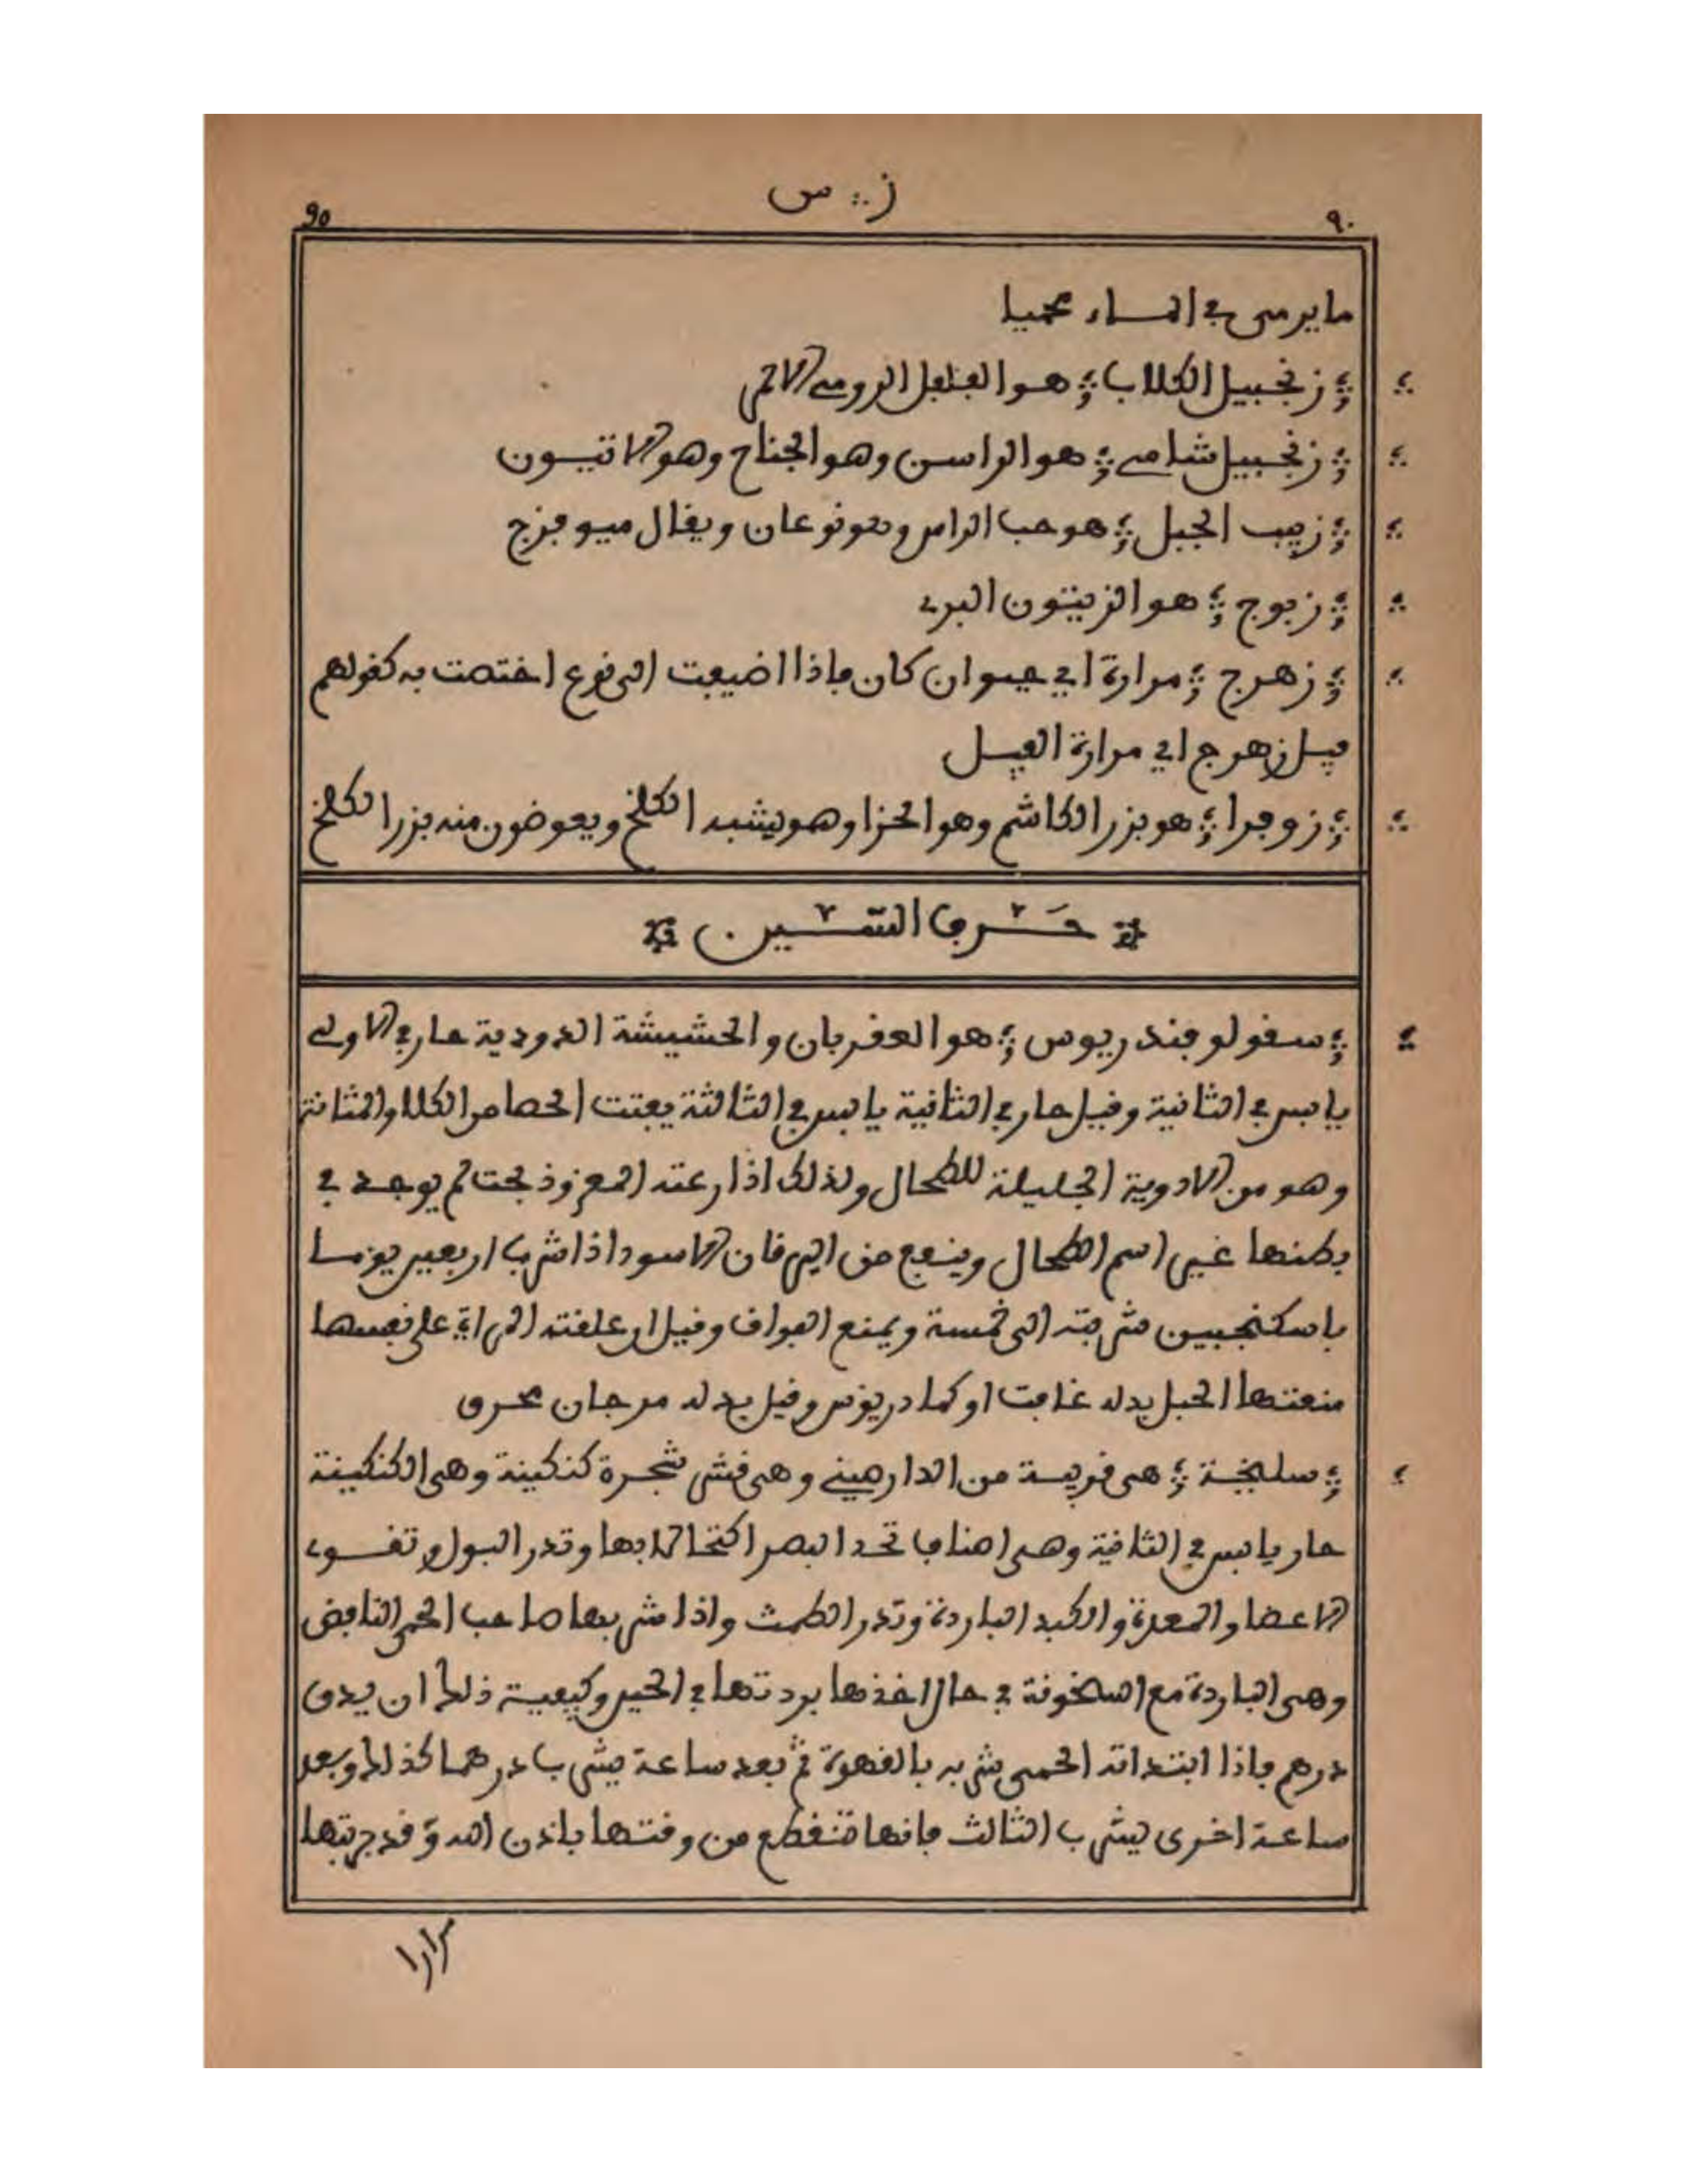 ز ؞ س
٩٠
90
ما يرمى في الماء محميا
زنجبيل الكلاب هو الفلفل الرومي الاتي
زنجبيل شامي هو الراسن وهو الجناح وهو الانيسون
زبيب الجبل هو حب الراس وهو نوعان ويقال ميوفزج
زبوج هو الزيتون البري
زهرج مرارة اي حيوان كان فاذا اضيفت الى نوع اختصت به كقولهم
فيل زهرج اي مرارة الفيل
زوفرا هو بزر الكاشم وهو الحزا وهو يشبه الكلخ ويعوضون منه بزر الكلخ
حرف السين
سقولوفندريوس هو العقربان والحشيشة الدودية حار في الاولى
يابس في الثانية وقيل حار في الثانية يابس في الثالثة يفتت الحصا من الكلا والمثانة
وهو من الادوية الجليلة للطحال ولذلك اذا رعته المعز وذبحت لم يوجد في
بطنها غير اسم الطحال وينفع من اليرقان الاسود اذا شرب اربعين يوما
باسكنجبين شربته الى خمسة ويمنع الفواق وقيل ان علقته المراة على نفسها
منعتها الحبل بدله غافت او كمادريوس وقيل بدله مرجان محرق
سليخة هي قريبة من الدارصيني وهي قشر شجرة كنكينة وهي الكنكينة
حار يابس في الثانية وهي اصناف تحد البصر اكتحالا بها وتدر البول وتقوي
الاعضا والمعدة والكبد الباردة وتدر الطمث واذا شربها صاحب الحمى النافض
وهي الباردة مع السخونة في حال اخذها بردتها في الحين وكيفية ذلك ان يدق
درهم فاذا ابتداته الحمى شربه بالقهوة ثم بعد ساعة يشرب درهما كذلك وبعد
ساعة اخرى يشرب الثالث فانها تنقطع من وقتها باذن الله وقد جربتها
مرارا